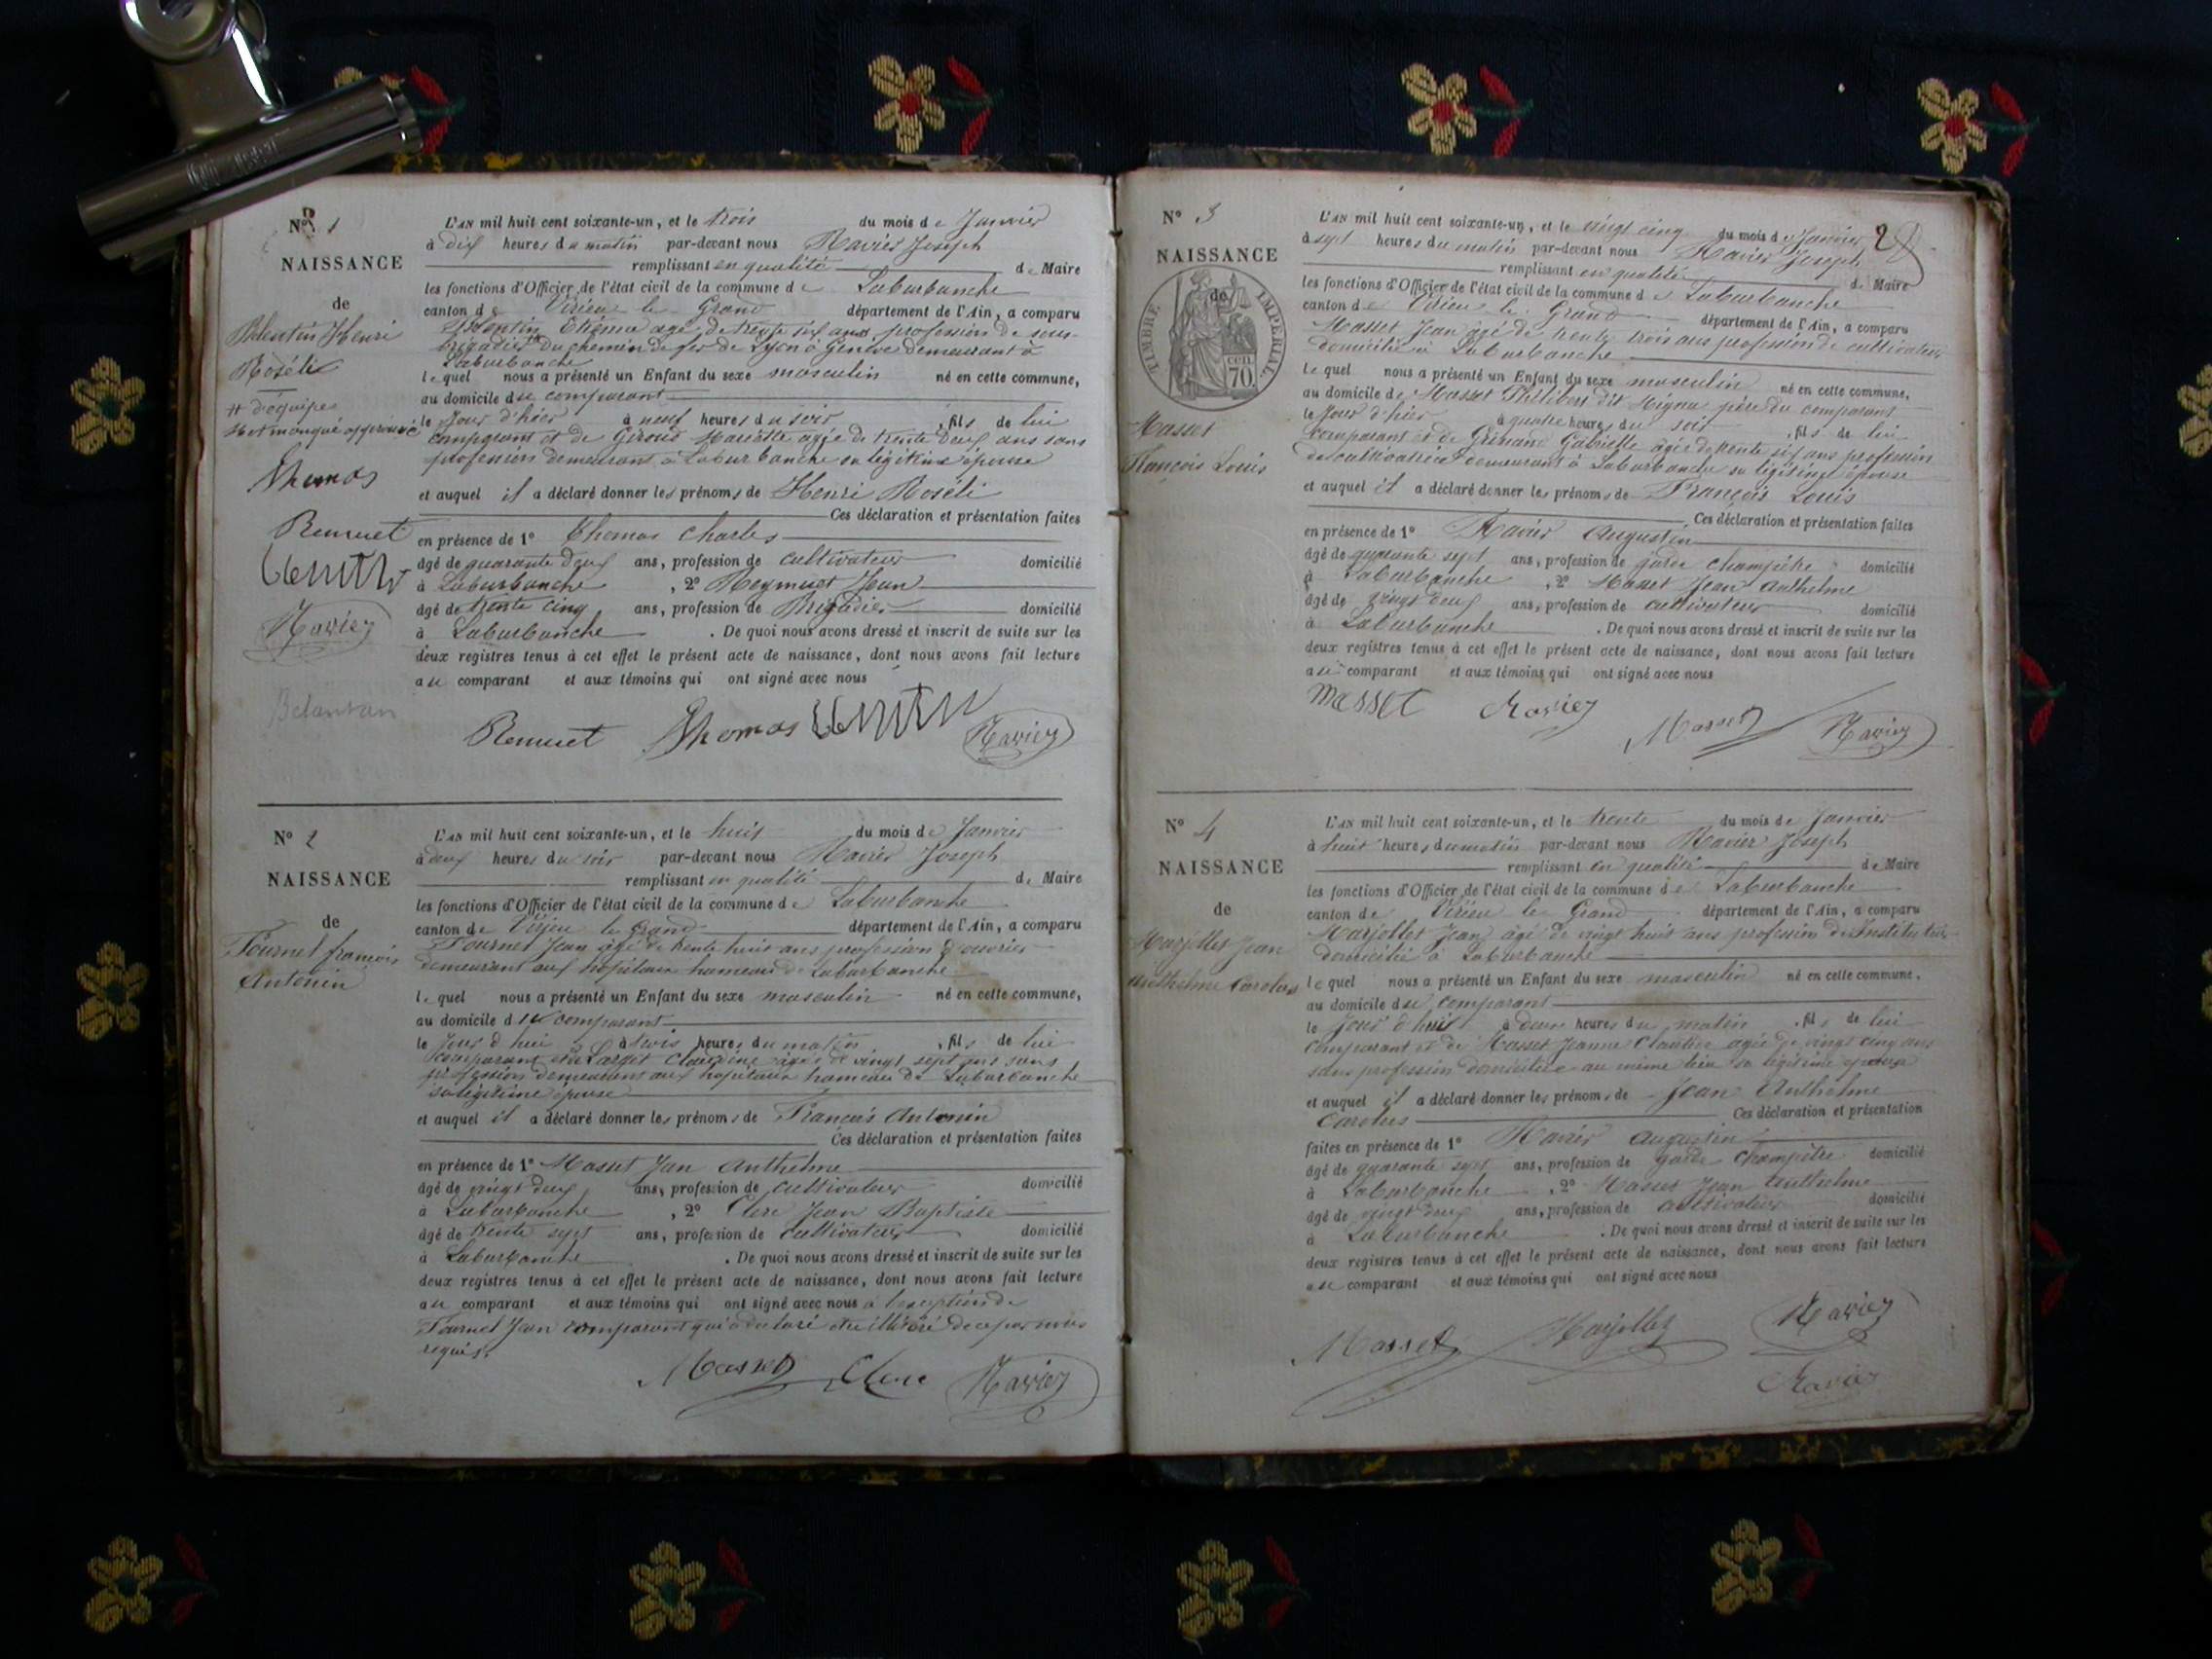 N° 1
NAISSANCE
de
Henri
Roséli
# d'équipe
Thomas
Remuet
Ravier
L'AN mil huit cent soixante-un, et le trois du mois de Janvier
à dix heures du matin par-devant nous Ravier Joseph
remplissant en qualité de Maire
les fonctions d'Officier de l'état civil de la commune de Laburbanche
canton de Virieu le Grand département de l'Ain, a comparu
Etienne agé de trente six ans profession de sous-
brigadier # du chemin de fer de Lyon à Genève demeurant à
Laburbanche
lequel nous a présenté un Enfant du sexe masculin né en cette commune,
au domicile du comparant
le Jour d'hier à neuf heures du soir, fils de lui
comparant et de Mariette agée de trente deux ans sans
profession demeurant à Laburbanche sa légitime épouse
et auquel il a déclaré donner les prénoms de Henri Roséli
Ces déclaration et présentation faites
en présence de 1° Thomas Charles
âgé de quarante deux ans, profession de cultivateur domicilié
à Laburbanche, 2° Jean
âgé de trente cinq ans, profession de Brigadier domicilié
à Laburbanche. De quoi nous avons dressé et inscrit de suite sur les
deux registres tenus à cet effet le présent acte de naissance, dont nous avons fait lecture
au comparant et aux témoins qui ont signé avec nous
Remuet Thomas Ravier
N° 2
NAISSANCE
de
Tournel françois
Antonin
L'AN mil huit cent soixante-un, et le huit du mois de Janvier
à deux heures du soir par-devant nous Ravier Joseph
remplissant en qualité de Maire
les fonctions d'Officier de l'état civil de la commune de Laburbanche
canton de Virieu le Grand département de l'Ain, a comparu
Tournel Jean âgé de trente huit ans profession d'ouvrier
demeurant aux hopitaux hameau de Laburbanche
lequel nous a présenté un Enfant du sexe masculin né en cette commune,
au domicile du comparant
le Jour d'hui à trois heures du matin, fils de lui
comparant et de Claudine agée de vingt sept ans sans
profession demeurant aux hopitaux hameau de Laburbanche
sa légitime épouse
et auquel il a déclaré donner les prénoms de François Antonin
Ces déclaration et présentation faites
en présence de 1° Masset Jean Anthelme
âgé de vingt deux ans, profession de cultivateur domicilié
à Laburbanche, 2° Clerc Jean Baptiste
âgé de trente sept ans, profession de cultivateur domicilié
à Laburbanche. De quoi nous avons dressé et inscrit de suite sur les
deux registres tenus à cet effet le présent acte de naissance, dont nous avons fait lecture
au comparant et aux témoins qui ont signé avec nous à l'exception de
Tournel Jean comparant qui a déclaré être illitéré de ce par nous
requis.
Masset Clerc Ravier
2
N° 3
NAISSANCE
de
TIMBRE IMPERIAL
70 cen
Masset
François Louis
L'AN mil huit cent soixante-un, et le vingt cinq du mois de Janvier
à sept heures du matin par-devant nous Ravier Joseph
remplissant en qualité de Maire
les fonctions d'Officier de l'état civil de la commune de Laburbanche
canton de Virieu le Grand département de l'Ain, a comparu
Masset Jean âgé de trente trois ans profession de cultivateur
domicilié à Laburbanche
lequel nous a présenté un Enfant du sexe masculin né en cette commune,
au domicile de Masset Philibert dit père du comparant
le Jour d'hier à quatre heures du soir, fils de lui
comparant et de Gabrielle agée de trente six ans profession
de cultivatrice demeurant à Laburbanche sa légitime épouse
et auquel il a déclaré donner les prénoms de François Louis
Ces déclaration et présentation faites
en présence de 1° Ravier Augustin
âgé de quarante sept ans, profession de garde champêtre domicilié
à Laburbanche, 2° Masset Jean Anthelme
âgé de vingt deux ans, profession de cultivateur domicilié
à Laburbanche. De quoi nous avons dressé et inscrit de suite sur les
deux registres tenus à cet effet le présent acte de naissance, dont nous avons fait lecture
au comparant et aux témoins qui ont signé avec nous
Masset Ravier Masset Ravier
N° 4
NAISSANCE
de
Marjollet Jean
Anthelme Carolus
L'AN mil huit cent soixante-un, et le trente du mois de Janvier
à huit heures du matin par-devant nous Ravier Joseph
remplissant en qualité de Maire
les fonctions d'Officier de l'état civil de la commune de Laburbanche
canton de Virieu le Grand département de l'Ain, a comparu
Marjollet Jean âgé de vingt huit ans profession d'Instituteur
domicilié à Laburbanche
lequel nous a présenté un Enfant du sexe masculin né en cette commune.
au domicile du comparant
le Jour d'hui à deux heures du matin, fils de lui
comparant et de Masset Jeanne Claudine agée de vingt cinq ans
sans profession domiciliée au même lieu sa légitime épouse
et auquel il a déclaré donner les prénoms de Jean Anthelme
Carolus Ces déclaration et présentation
faites en présence de 1° Ravier Augustin
âgé de quarante sept ans, profession de garde champêtre domicilié
à Laburbanche, 2° Masset Jean Anthelme
âgé de vingt deux ans, profession de cultivateur domicilié
à Laburbanche. De quoi nous avons dressé et inscrit de suite sur les
deux registres tenus à cet effet le présent acte de naissance, dont nous avons fait lecture
au comparant et aux témoins qui ont signé avec nous
Masset Marjollet Ravier
Ravier